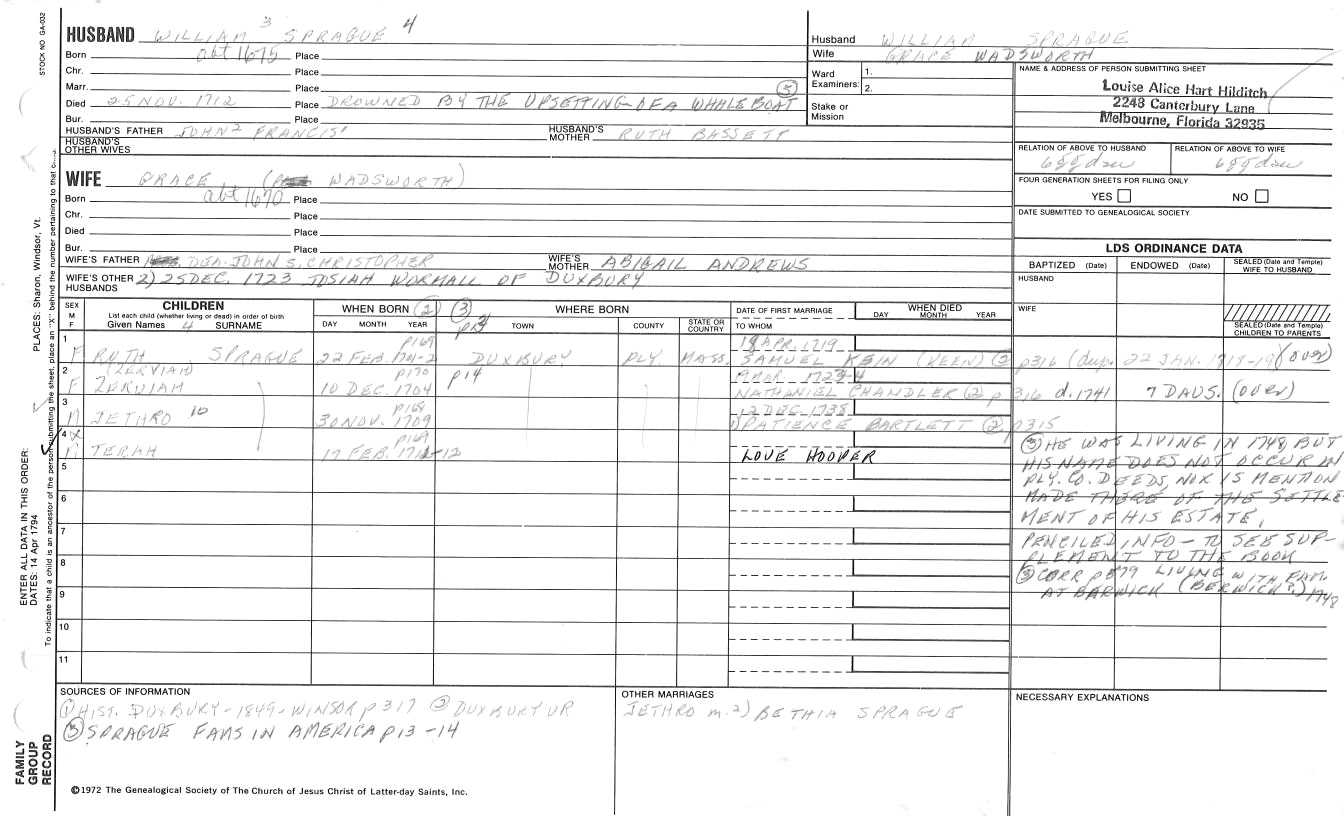 STOCK NO. GA-032
HUSBAND WILLIAM 3 SPRAGUE 4
Born abt 1675 Place
Chr. Place
Marr. Place
Died 25 NOV. 1712 Place DROWNED BY THE UPSETTING OF A WHALEBOAT (3)
Bur. Place
HUSBAND'S FATHER JOHN 2 FRANCIS 1 HUSBAND'S MOTHER RUTH BASSETT
HUSBAND'S OTHER WIVES
WIFE GRACE ( WADSWORTH)
Born abt 1670 Place
Chr. Place
Died Place
Bur. Place
WIFE'S FATHER DEA. JOHN S. CHRISTOPHER WIFE'S MOTHER ABIGAIL ANDREWS
WIFE'S OTHER HUSBANDS 2) 25 DEC. 1723 JOSIAH WORMALL OF DUXBURY
Husband WILLIAM SPRAGUE
Wife GRACE WADSWORTH
Ward Examiners: 1.
2.
Stake or Mission
NAME & ADDRESS OF PERSON SUBMITTING SHEET
Louise Alice Hart Hilditch
2248 Canterbury Lane
Melbourne, Florida 32935
RELATION OF ABOVE TO HUSBAND RELATION OF ABOVE TO WIFE
6ggdau 6ggdau
FOUR GENERATION SHEETS FOR FILING ONLY
YES NO
DATE SUBMITTED TO GENEALOGICAL SOCIETY
LDS ORDINANCE DATA
BAPTIZED (Date) ENDOWED (Date) SEALED (Date and Temple) WIFE TO HUSBAND
HUSBAND
WIFE
SEALED (Date and Temple) CHILDREN TO PARENTS
SEX M F CHILDREN List each child (whether living or dead) in order of birth Given Names 4 SURNAME
WHEN BORN (2) DAY MONTH YEAR
(3) WHERE BORN TOWN COUNTY STATE OR COUNTRY
DATE OF FIRST MARRIAGE TO WHOM
WHEN DIED DAY MONTH YEAR
1 p169 18 APR. 1719
F RUTH SPRAGUE 22 FEB. 1701-2 DUXBURY PLY MASS. SAMUEL KEIN (KEEN) (2) p316 (dup. 22 JAN. 1718-19) (over)
2 (ZERVIAH) p170 p14 1723-4
F ZERUIAH 10 DEC. 1704 NATHANIEL CHANDLER (2) p 316 d. 1741 7 DAUS. (over)
3 p168 12 DEC 1738
M JETHRO 10 30 NOV. 1709 1) PATIENCE BARTLETT (2) p315
4 X p169
M TERAH 17 FEB. 1711-12 LOVE HOOPER
5
6
7
8
9
10
11
(3) HE WAS LIVING IN 1748, BUT
HIS NAME DOES NOT OCCUR IN
PLY. CO. DEEDS, NOR IS MENTION
MADE THERE OF THE SETTLE
MENT OF HIS ESTATE,
PENCILED INFO - TO SEE SUP-
PLEMENT TO THE BOOK
(3) CORR p 579 LIVING WITH FAM.
AT BARWICK (BERWICK?) 1748
SOURCES OF INFORMATION
(1) HIST. DUXBURY - 1849 - WINSOR p 317 (2) DUXBURY VR
(3) SPRAGUE FAMS IN AMERICA p13 - 14
OTHER MARRIAGES
JETHRO m. 2) BETHIA SPRAGUE
NECESSARY EXPLANATIONS
©1972 The Genealogical Society of The Church of Jesus Christ of Latter-day Saints, Inc.
FAMILY GROUP RECORD
ENTER ALL DATA IN THIS ORDER:
DATES: 14 Apr 1794
PLACES: Sharon, Windsor, Vt.
To indicate that a child is an ancestor of the person submitting the sheet, place an "X" behind the number pertaining to that